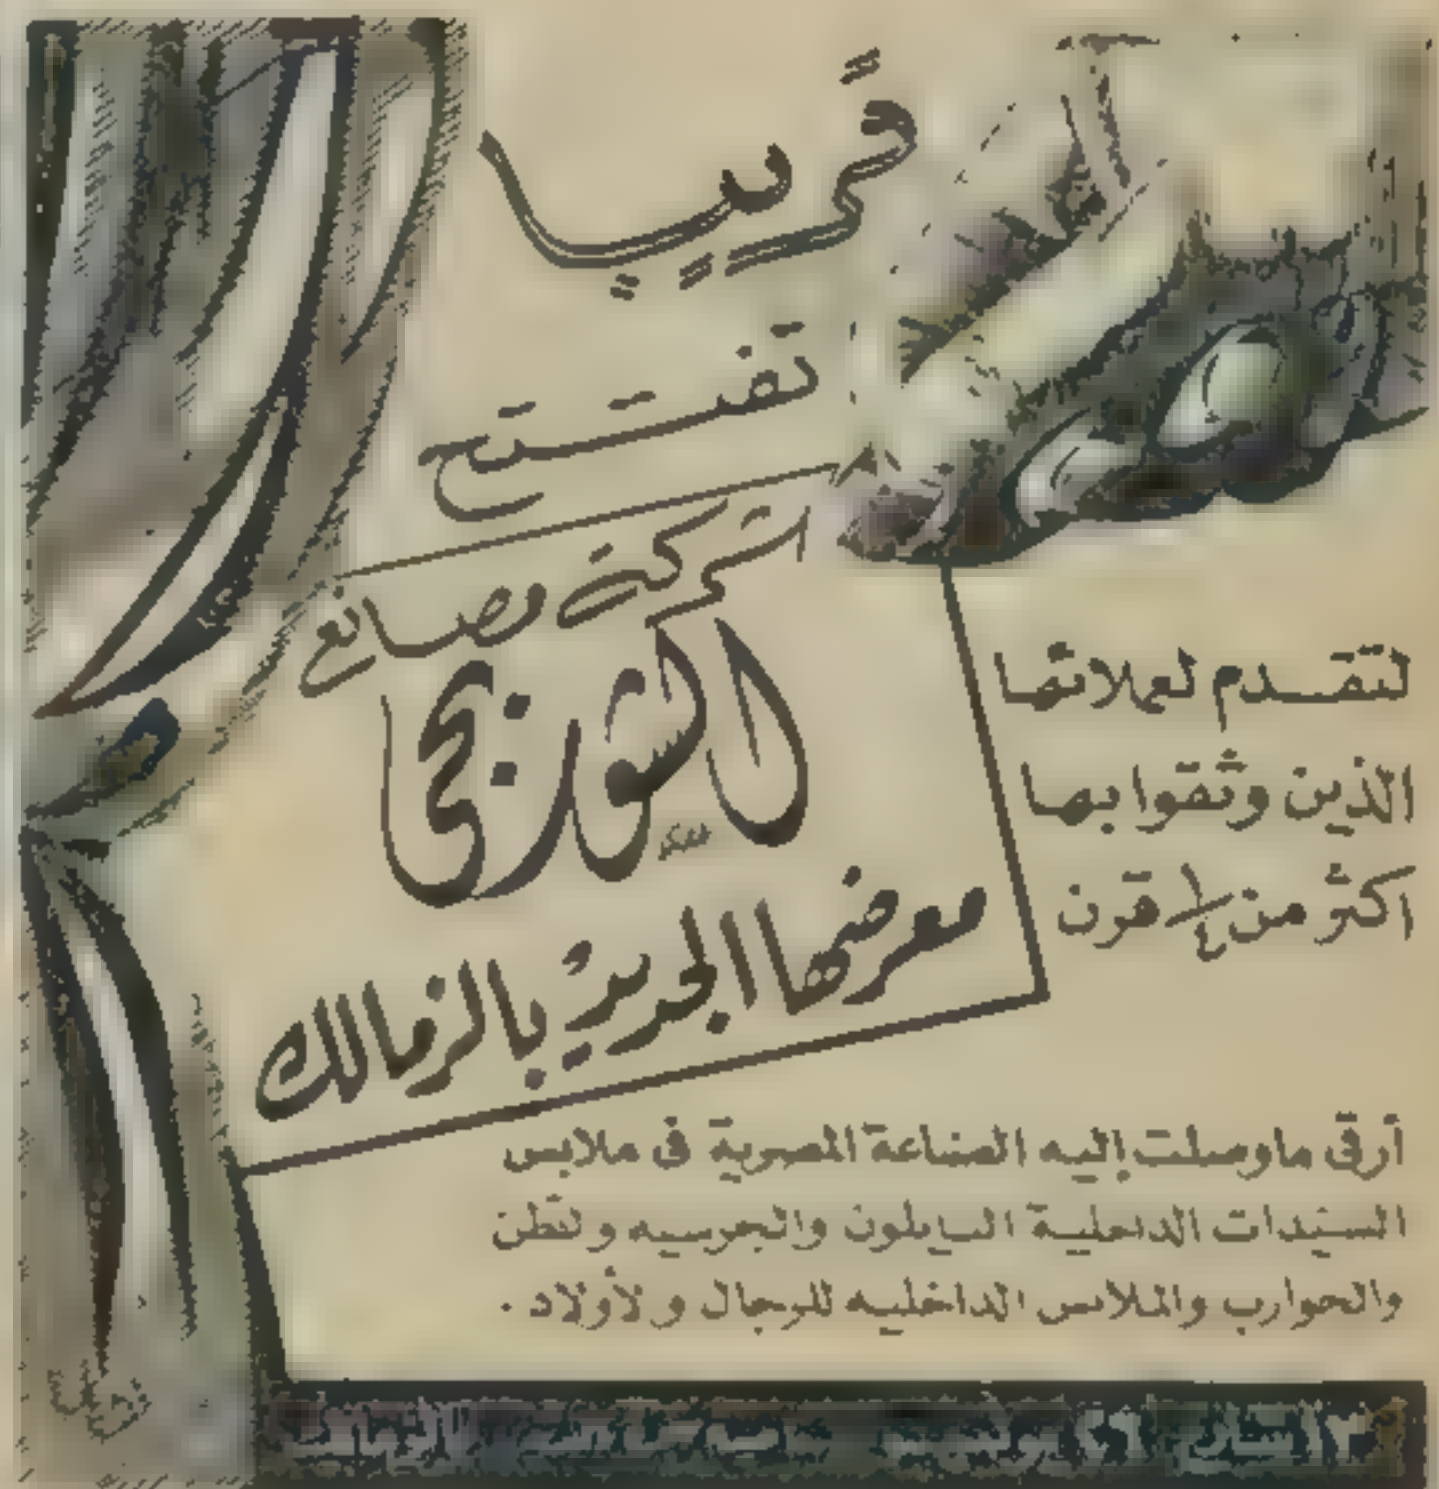 قريبا
تفتتح
شركة مصانع
الشوربجي
معرضها الجديد بالزمالك
لتقدم لعملائها
الذين وثقوا بها
اكثر من ١/٤ قرن
أرقى ما وصلت إليه الصناعة المصرية في ملابس
السيدات الداخلية النايلون والجرسيه ولقطن
والجوارب والملابس الداخليه للرجال ولأولاد .